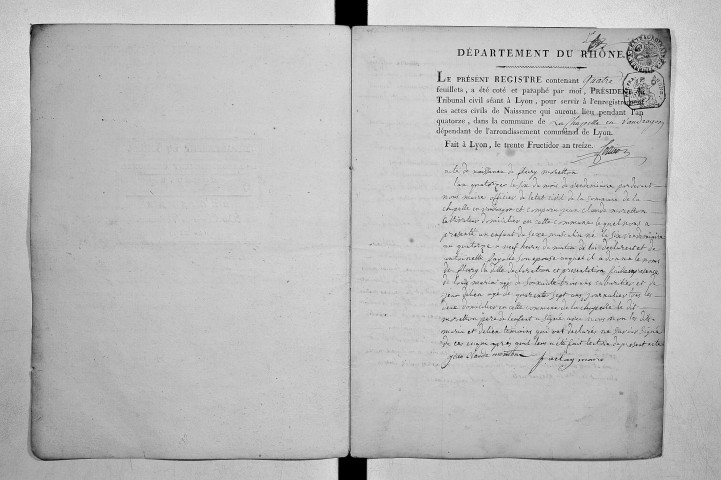 DÉPARTEMENT DU RHÔNE.
LE PRÉSENT REGISTRE contenant quatre
feuillets, a été coté et paraphé par moi, PRÉSIDENT du
Tribunal civil séant à Lyon, pour servir à l'enregistrement
des actes civils de Naissance qui auront lieu pendant l'an
quatorze, dans la commune de La Chapelle en Vaudragon
dépendant de l'arrondissement communal de Lyon.
Fait à Lyon, le trente Fructidor an treize.
acte de naissance de fleury moretton
l'an quatorze le six du mois de vendemiaire par devant
nous maire officier de l'etat civil de la commune de la
chapelle en vaudragon est comparu jean claude moretton
cultivateur domicilier en cette commune lequel nous a
presenté un enfant du sexe masculin né le six vendemiaire
an quatorze a neuf heures du matin de lui declarent et de
antoinette son epouse auquel il a donné le nom
de fleury la dite declaration et presentation faite en presence
de louis marin agé de soixante
agé de quarente sept ans journalier tous les
deux domicilier en cette commune de la chapelle le dit
moretton pere de l'enfant a signé avec nous non les dits
marin et temoins qui ont declarer ne savoir signé
de ce enquis apres qu'il leur a eté fait lecture du present acte
jean claude moretton
maire